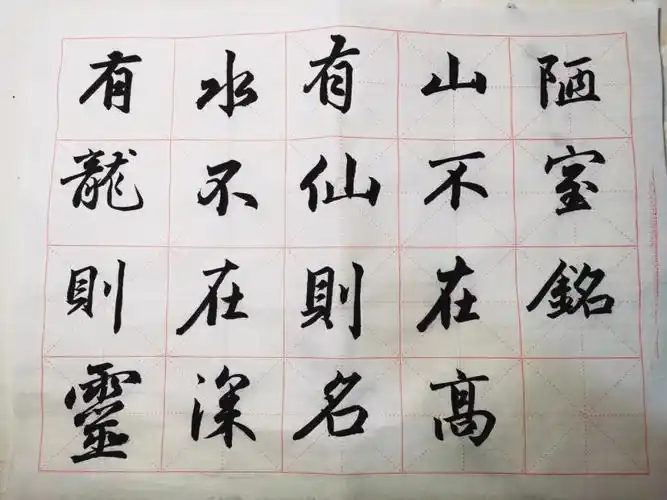 陋室銘
山不在高
有仙則名
水不在深
有龍則靈